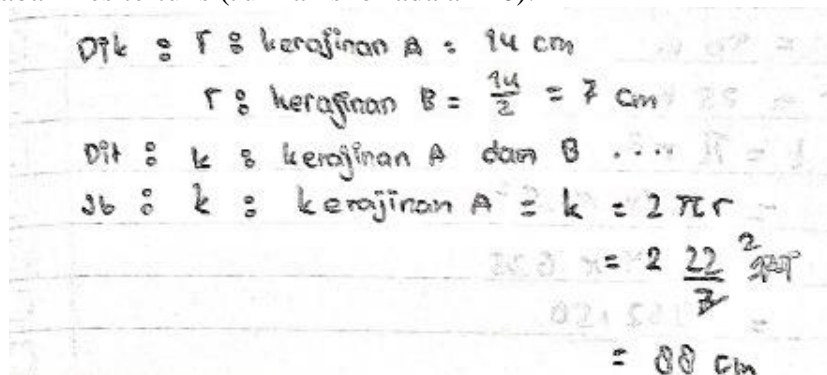 Dik : r : kerajinan A = 14 cm
r : kerajinan B = 14/2 = 7 cm
Dit : k : kerajinan A dan B ....
Jb : k : kerajinan A = k = 2πr
= 2 22/7 14 2
= 88 cm